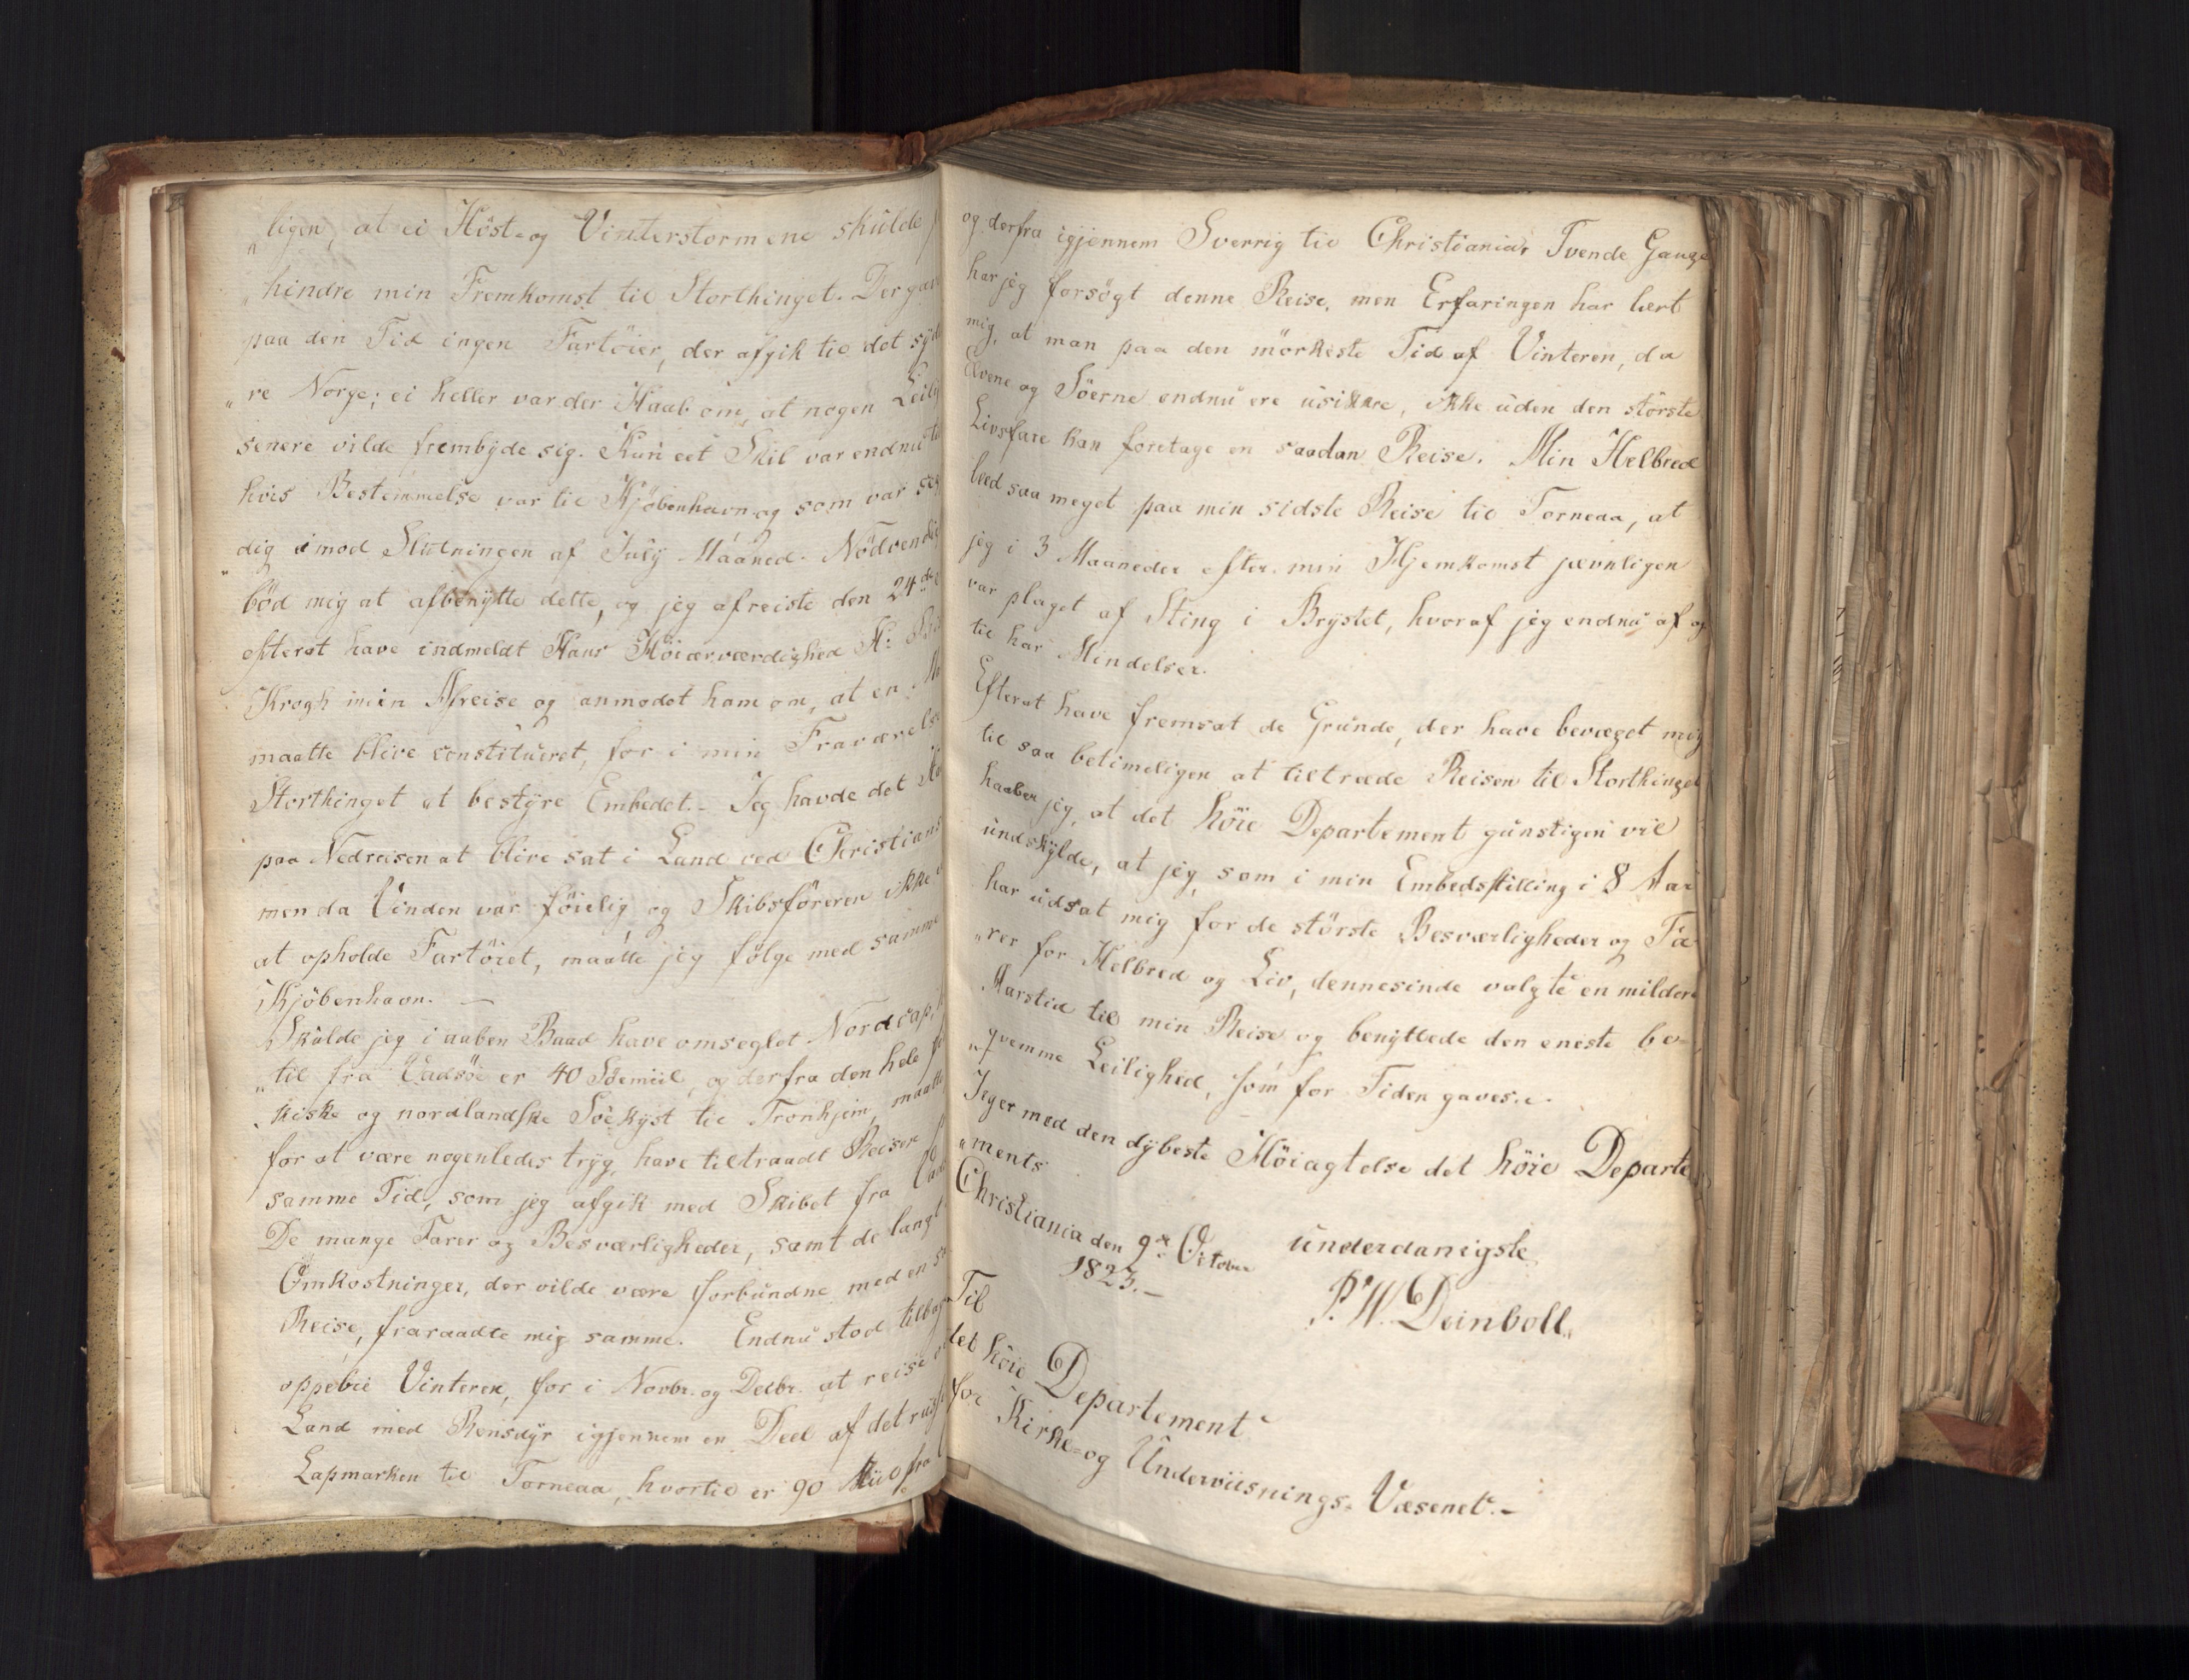 „ligen, at ei Höst- og Vinterstormene skulde
„hindre min Fremkomst til Storthinget. Der gaves
paa den Tid ingen Fartöier, der afgik til det syd
„re Norge; ei heller var der Haab om, at nogen Leilig
senere vilde frembyde sig. Kun eet Skib var endnu
hvis Bestemmelse var til Kjöbenhavn og som var
„dig imod Slutningen af July Maaned. Nödvendig
böd mig at afbenytte dette, og jeg afreiste den 24de
efterat have indmeldt Hans Höiærværdighed Hr
Krogh min Afreise og anmodet ham om, at en
maatte blive constitueret, for i min Fraværelse
Storthinget at bestyre Embedet. - Jeg havde det
paa Nedreisen at blive sat i Land ved Christians
men da Vinden var föielig og Skibsföreren ikke
at opholde Fartöiet, maatte jeg fölge med samme
i Kjöbenhavn. —
Skulde jeg i aaben Baad have omseglet Nordcap,
„til fra Vadsöe er 40 Söemiil, og derfra den hele
„kiske og nordlandske Söekyst til Tronhjem, maatte
for at være nogenledes tryg, have tiltraadt Reisen
samme Tid, som jeg afgik med Skibet fra
De mange Farer og Besværligheder, samt de
Omkostninger, der vilde være forbundne med en
Reise, fraraadte mig samme. Endnu stod
oppebie Vinteren, for i Novbr. og Decbr. at reise
Land med Rensdyr igjennem en Deel af det
Lapmarken til Torneaa, hvortil er 90 Miil fra
og derfra igjennem Sverrig til Christiania. Tvende Gange
har jeg forsögt denne Reise, men Erfaringen har lært
mig, at man paa den mörkeste Tid af Vinteren, da
Elvene og Söerne endnu ere usikkre, ikke uden den störste
Livsfare kan foretage en saadan Reise. Min Helbred
leed saa meget paa min sidste Reise til Torneaa, at
jeg i 3 Maaneder efter min Hjemkomst jevnligen
var plaget af Sting i Brystet, hvoraf jeg endnu af og
til har Mindelser.
Efterat have fremsat de Grunde, der have bevæget mig
til saa betimeligen at tiltræde Reisen til Storthinget
haaber jeg, at det höie Departement gunstigen vil
undskylde, at jeg, som i min Embedsstilling i 8 Aar
har udsat mig for de störste Besværligheder og Fa
„rer for Helbred og Liv, dennesinde valgte en mildere
Aarstid til min Reise og benyttede den eneste be-
„qvemme Leilighed, som for Tiden gaves. -
Jeg er med den dybeste Höiagtelse det höie Departe
„ments
Christiania den 9de October
1823. —
underdanigste
P. W. Deinboll.
Til
det höie Departement
for Kirke- og Underviisnings-Væsenet. -